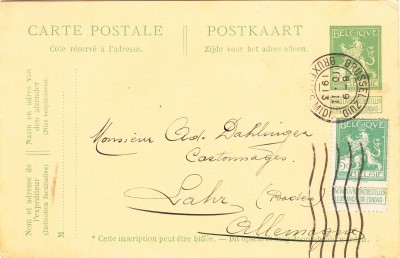 CARTE POSTALE
POSTKAART
Côté réservé à l'adresse.
Zijde voor het adres alleen.
BELGIQUE
BELGIË
BRUSSEL-ZUID
8-9
10.II
1913
BRUXELLES-MIDI
BELGIQUE
BELGIË
Naam en adres van
den afzender
(Niet verplichtend)
Nom et adresse de
l'expéditeur
(Indication facultative)
M
Monsieur Ad. Dahlinger
Cartonnages.
Lahr (Baden)
Allemagne
* Cette inscription peut être biffée. — Dit opschrift mag doorgehaald worden.